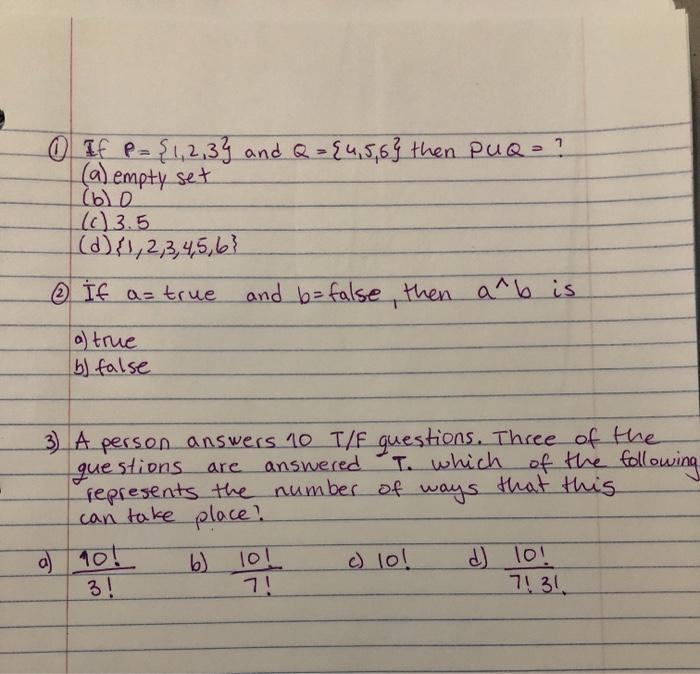 ① If P = {1,2,3} and Q = {4,5,6} then PUQ = ?
(a) empty set
(b) 0
(c) 3.5
(d) {1,2,3,4,5,6}
② If a= true and b=false, then a^b is
a) true
b) false
3) A person answers 10 T/F questions. Three of the
questions are answered T. which of the following
represents the number of ways that this
can take place?
a) 10!/3! b) 10!/7! c) 10! d) 10!/7! 3!